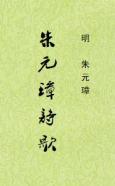 明 朱元璋
朱元璋詩歌